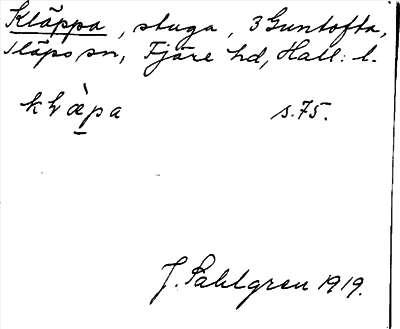 Kläppa, stuga, 3 Guntofta,
Släps sn, Fjäre hd, Hall. l.
s. 75.
J. Sahlgren 1919.